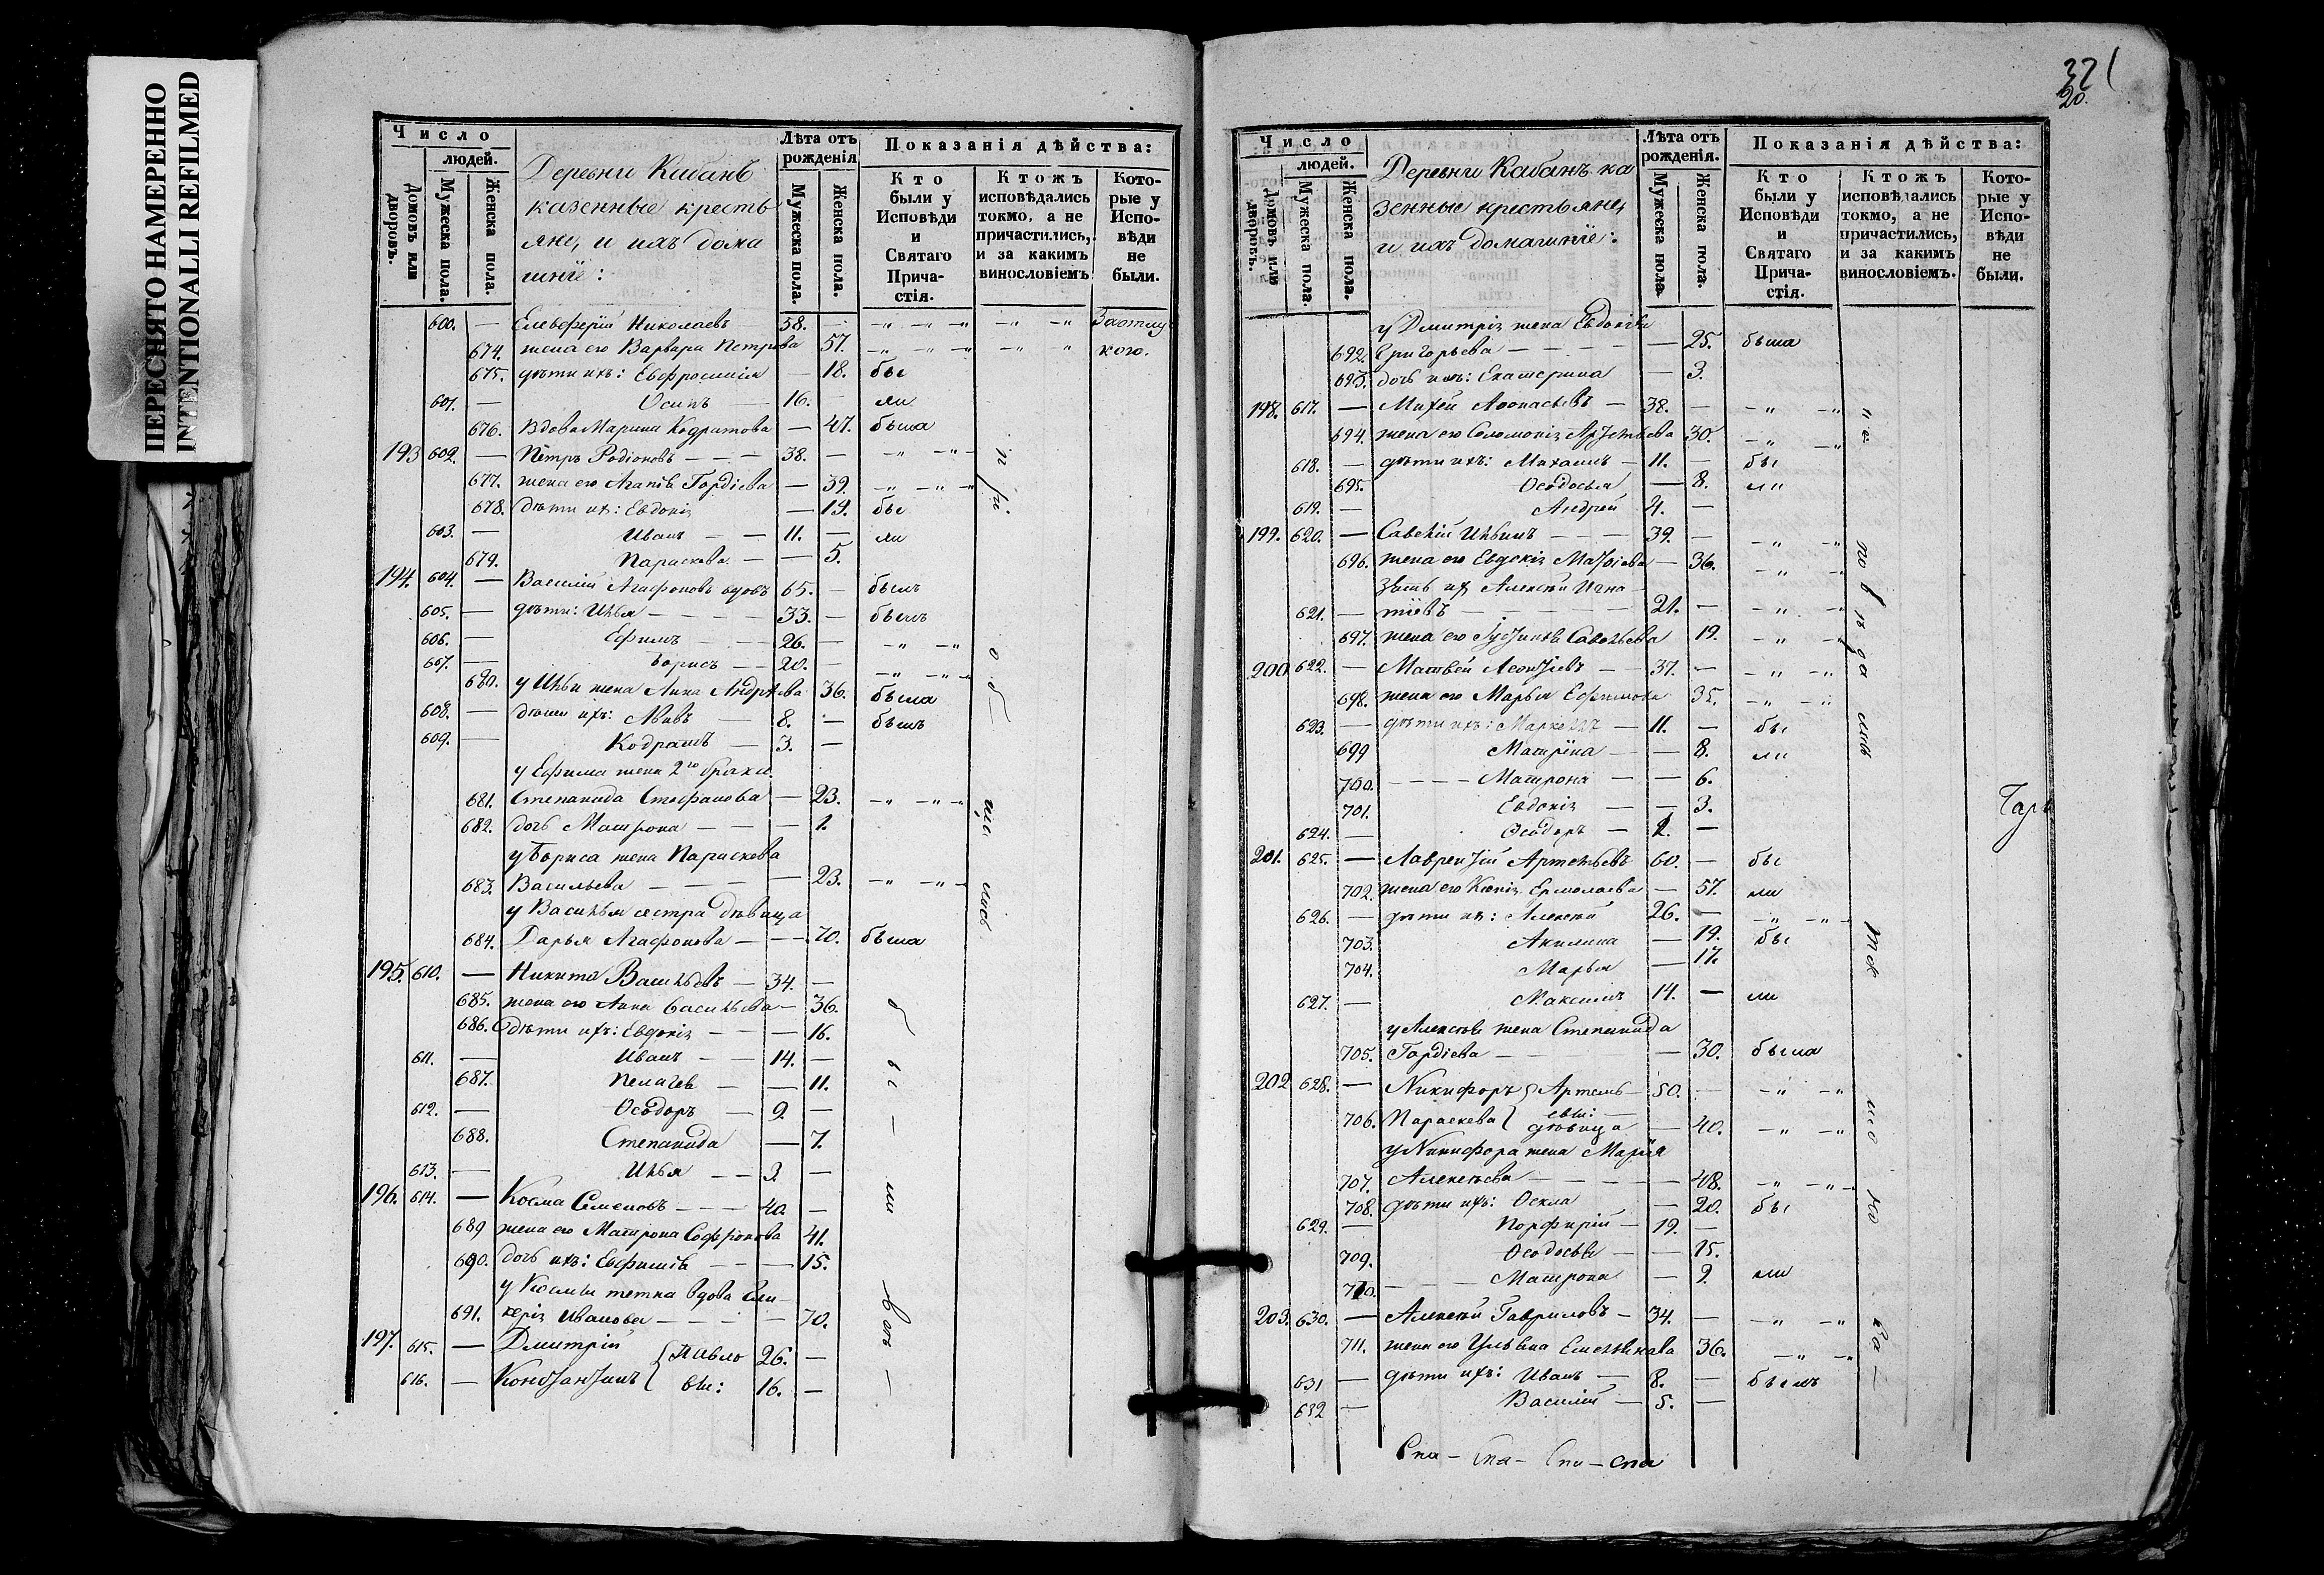 ПЕРЕСНЯТО НАМЕРЕННО
INTENTIONALLI REFILMED
Число
людей.
Домовъ или дворовъ.
Мужеска пола.
Женска пола.
Деревни Кабанъ
казенные кресть
яне, и ихъ дома
шніе:
Лѣта отъ рожденія
Мужеска пола.
Женска пола.
Показанія дѣйства:
Кто были у Исповѣди и Святаго Прича-стія.
Ктожъ исповѣдались токмо, а не причастились, и за какимъ винословіемъ.
Кото-рые у Испо-вѣди не были.
600. — Елевферій Николаевъ 58. —
674. жена его Варвара Петрова 57. кою.
675. дѣти ихъ: Евфросинія — 18. бы
601. — Осипъ 16. — ли
676. Вдова Марина Кодратова — 47. была
193 602. — Петръ Родіоновъ — 38. —
677. жена его Агапіа Гордіева — 39.
678. дѣти ихъ: Евдокія — 19. бы
603. — Иванъ — 11. — ли
679. Параскева — 5.
194. 604. — Василій Агафоновъ вдовъ 65. — былъ
605. — дѣти: Илья — 33. — былъ
606. — Ефимъ — 26. —
607. — Борисъ — 20. —
680. у Ильи жена Анна Андрѣева 36. была
608. — дѣти ихъ: Львъ — 8. — былъ
609. — Кодратъ — 3. —
у Ефима жена 2го брака
681. Степанида Стефанова — 23.
682. дочь Матрона — 1.
у Бориса жена Параскева
683. Васильева — 23.
у Василья сестра дѣвица
684. Дарья Агафонова — 70. была
195. 610. — Никита Васильевъ — 34. —
685. жена его Анна Васильева — 36.
686. дѣти ихъ: Евдокія — 16.
611. — Иванъ — 14. —
687. Пелагея — 11.
612. — Ѳеодоръ — 9. —
688. Степанида — 7.
613. — Илья — 3. —
196. 614. — Косма Семеновъ — 40. —
689 жена его Матрона Софронова 41.
690. дочь ихъ: Евфимія — 15.
у Космы тетка вдова Гли-
691. керія Иванова — 70.
197. 615. — Дмитрій { Павло 26. —
616. — Константинъ { вы: 16. —
321
20.
Число
людей.
Домовъ или дворовъ.
Мужеска пола.
Женска пола.
Деревни Кабанъ ка
зенные крестьяне,
и ихъ домашніе:
Лѣта отъ рожденія.
Мужеска пола.
Женска пола.
Показанія дѣйства:
Кто были у Исповѣди и Святаго Прича-стія.
Ктожъ исповѣдались токмо, а не причастились, и за какимъ винословіемъ.
Кото-рые у Испо-вѣди не были.
у Дмитрія жена Евдокіа
692. Григорьева — 25. была
693. дочь ихъ: Екатерина — 3.
198. 617. — Михей Аѳонасьевъ — 38. —
694. жена его Соломонія Артемьева 30.
618. — дѣти ихъ: Михаилъ — 11. — бы
695. Ѳеодосья — 8. ли
619. — Андрей 4. —
199. 620. — Савелій Ильинъ — 39. —
696. жена его Евдокія — 36.
зять их Алексѣй Игна
621. — тіевъ — 21. —
697. жена его Савельева 19.
200. 622. — Матвей Леонтіевъ — 37. —
698. жена его Марья Ефимова 35.
623. — дѣти ихъ: Маркеллъ — 11. — бы
699 — 8. ли
700. — Матрона — 6.
701. Евдокія — 3.
624. — Ѳеодоръ — 1. —
201. 625. — Лаврентій Артемьевъ 60. — бы
702. жена его Ксенія Ермолаева — 57. ли
626. — дѣти их: Алексѣй 26. —
703. Акилина — 19. бы
704. Марья — 17.
627. — Максимъ 14. — ли
у Алексѣя жена Степанида
705. Гордіева — 30. была
202 628. — Никифоръ } Артемь- 50. —
706. Параскева } евы: дѣвица — 40.
у Никифора жена Марія
707. Алексѣева — 48.
708. дѣти ихъ: Ѳекла — 20. бы
629. — Порфирій — 19. —
709. Ѳеодосья — 15.
710. — Матрона — 9. ли
203. 630. — Алексѣй Гавриловъ — 34. —
711. жена его Ульяна Емельянова 36.
631 — дѣти ихъ: Иванъ — 8. — былъ
632 — Василій — 5. —
Спа — Спа — Спа — спа